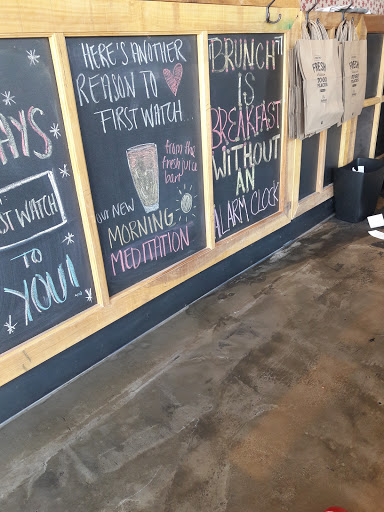 AYS
ST WATCH
TO
YOU!
HERE'S ANOTHER
REASON TO ♥
FIRST WATCH...
from the
fresh juice
bar!
our new
MORNING
MEDITATION
BRUNCH
IS
BREAKFAST
WITHOUT
AN
ALARM CLOCK
FRESH